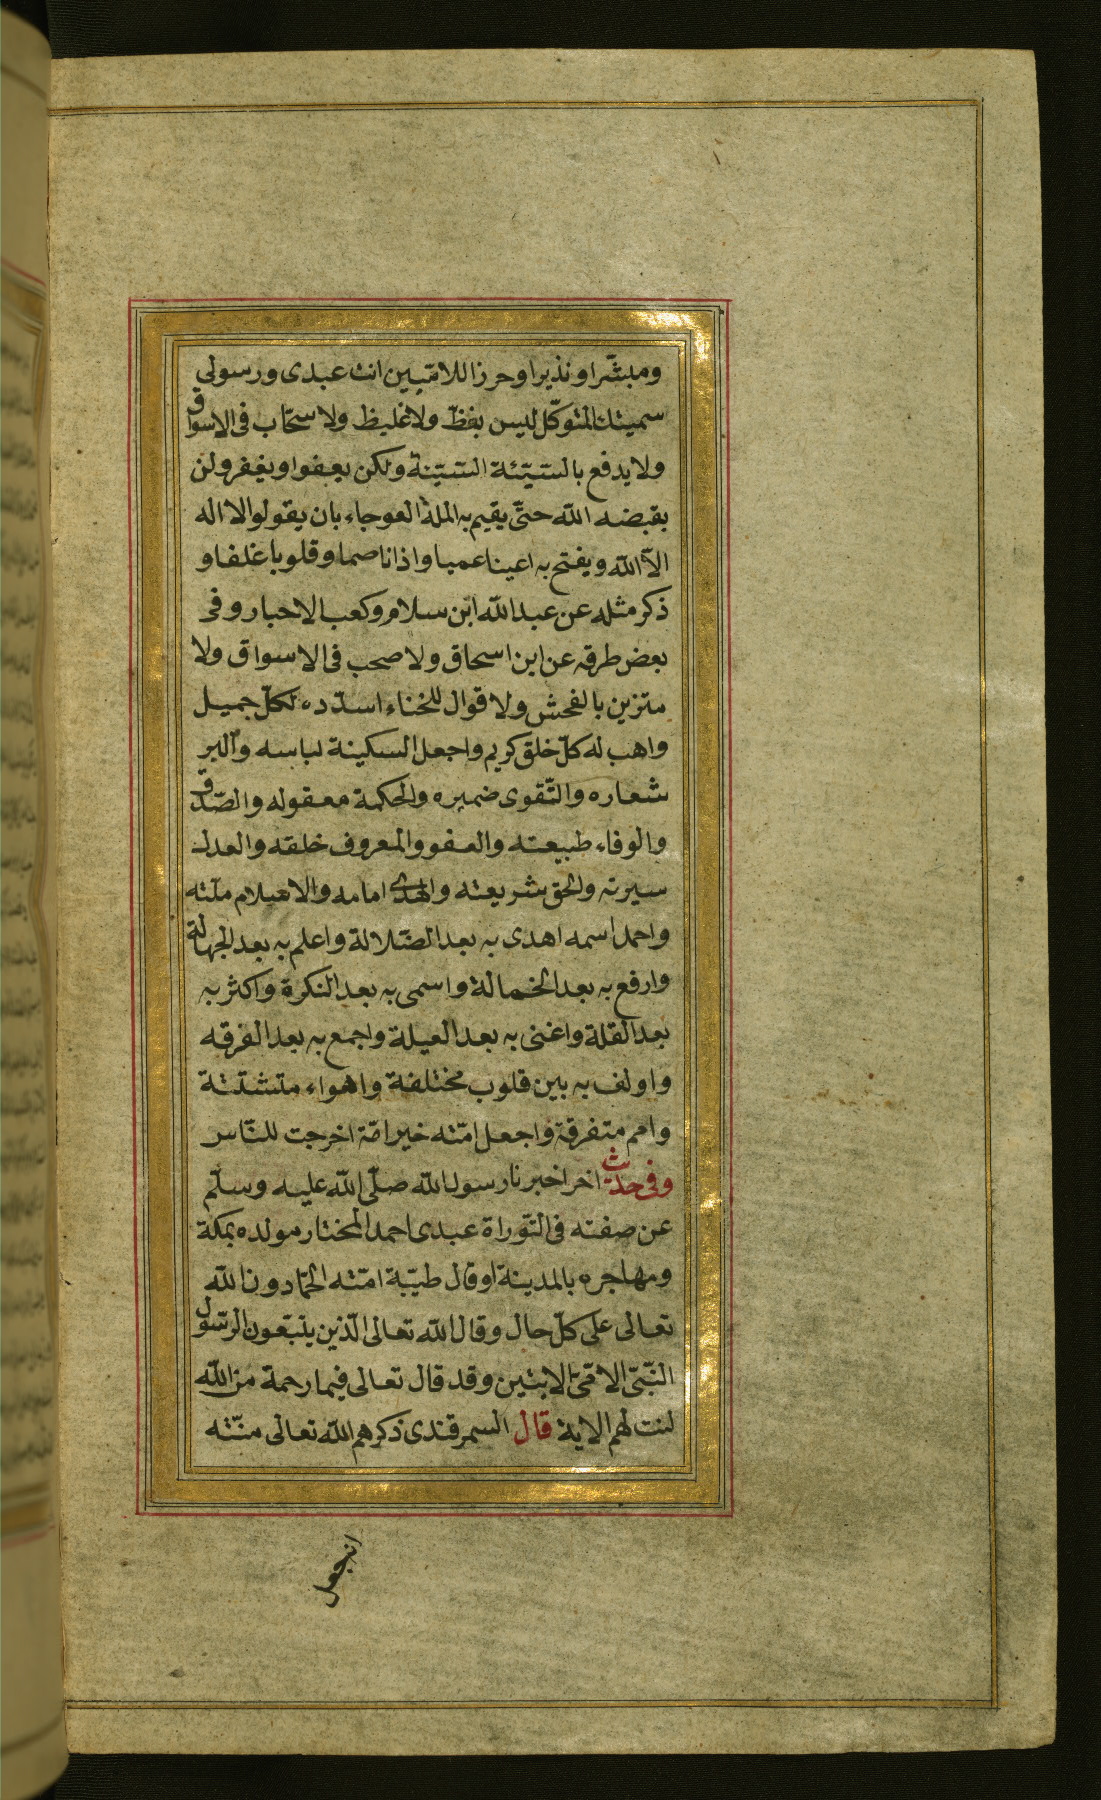 ومبشّرا ونذيرا وحرزا للامّيين انت عبدى ورسولى
سميتك المتوكّل ليس بفظّ ولا غليظ ولا سخّاب فى الاسواق
ولا يدفع بالسّيّئة السّيّئة ولكن يعفوا ويغفر ولن
يقبضه اللّه حتّى يقيم به الملة العوجاء بان يقولوا لا اله
الاّ اللّه ويفتح به اعينا عميا واذانا صما وقلوبا غلفا و
ذكر مثله عن عبد اللّه ابن سلام وكعب الاحبار وفى
بعض طرقه عن ابن اسحاق ولا صخب فى الاسواق ولا
متزين بالفحش ولا قوال للخناء اسدّده لكلّ جميل
واهب له كلّ خلق كريم واجعل السكينة لباسه والبر
شعاره والتّقوى ضميره والحكمة معقوله والصّدق
والوفاء طبيعته والعفو والمعروف خلقه والعدل
سيرته والحق شريعته والهدى امامه والاسلام ملّته
واحمد اسمه اهدى به بعد الضّلالة واعلم به بعد الجهالة
وارفع به بعد الخمالة واسمى به بعد النكرة واكثر به
بعد القلة واغنى به بعد العيلة واجمع به بعد الفرقه
واولف به بين قلوب مختلفة واهواء متشتتة
وامم متفرقة واجعل امّته خير امّة اخرجت للنّاس
وفى حديث اخر اخبرنا رسول اللّه صلّى اللّه عليه وسلّم
عن صفته فى التّوراة عبدى احمد المختار مولده بمكة
ومهاجره بالمدينة اوقال طيّبة امّته الحمّادون اللّه
تعالى على كلّ حال وقال اللّه تعالى الّذين يتّبعون الرّسول
النّبىّ الامّىّ الايتين وقد قال تعالى فبما رحمة من اللّه
لنت لهم الاية قال السمرقندى ذكرهم اللّه تعالى منّته
انه جعل